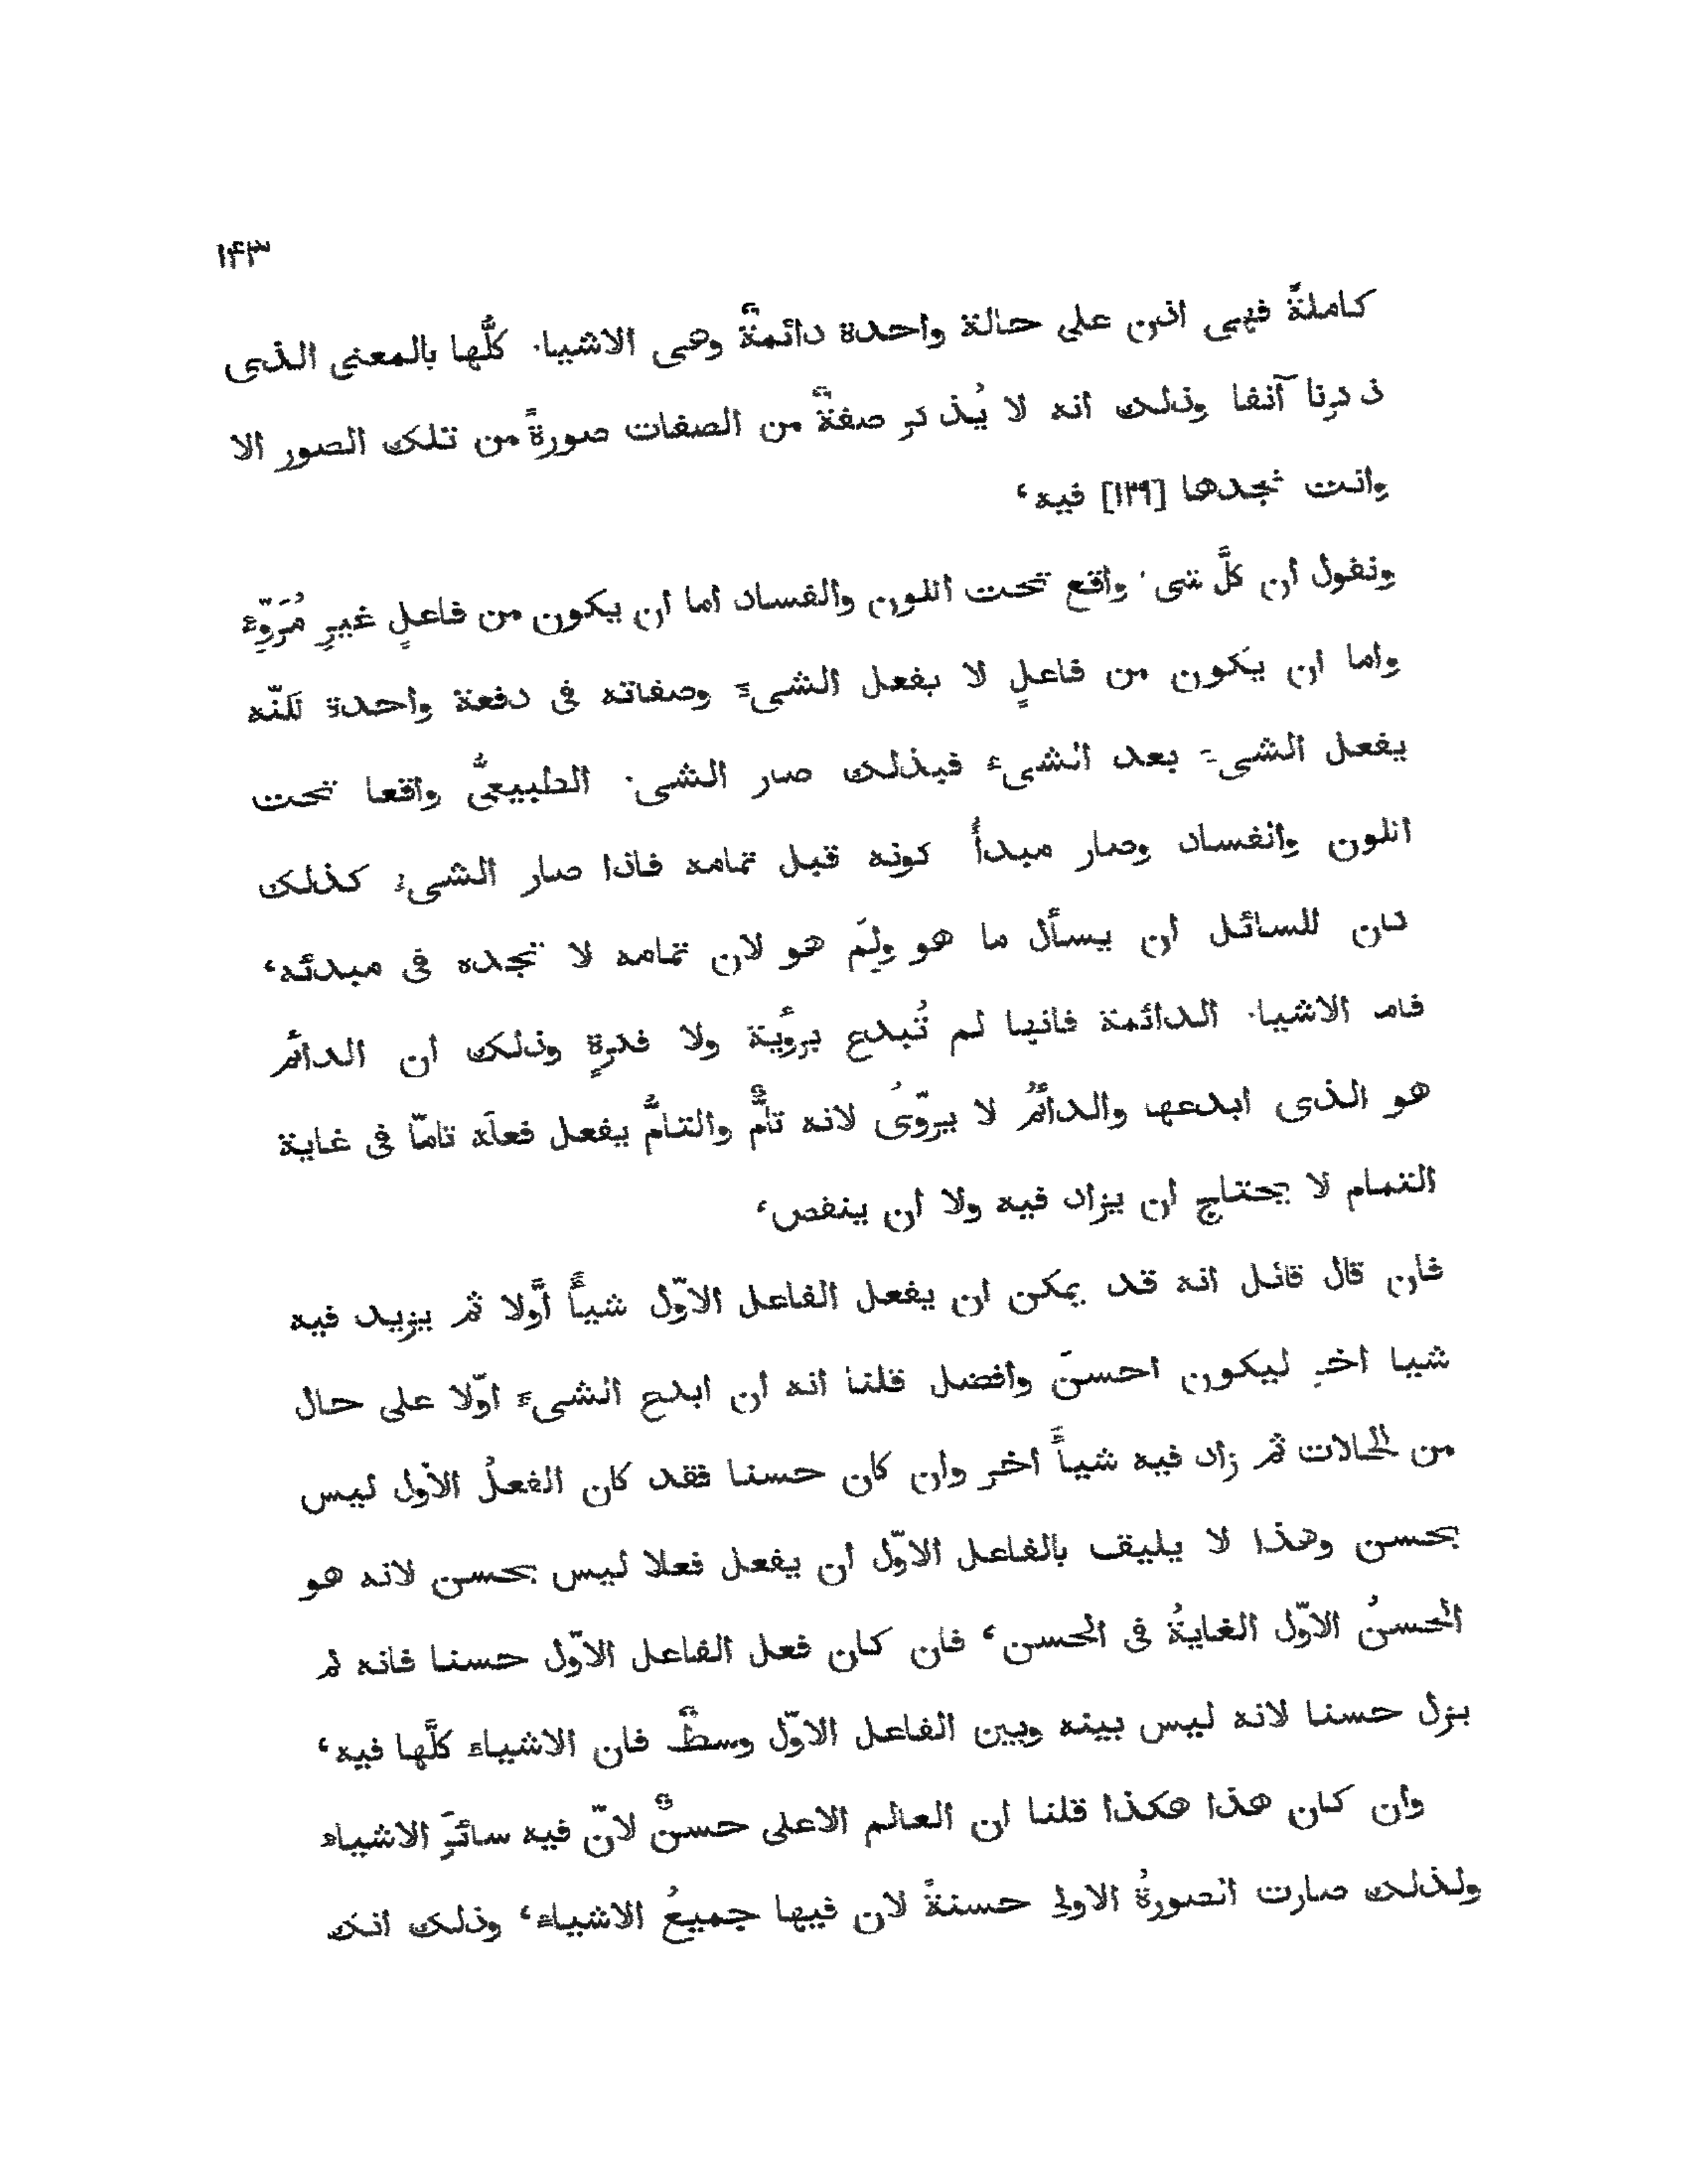 ١۴٣
كاملةً فهى اذن على حالة واحدة دائمةٌ وهى الاشياء كلُّها بالمعنى الذى
ذكرنا آنفا وذلك انه لا يُذكر صفةٌ من الصفات صورةً من تلك الصور الا
وانت تجدها [١٣٩] فيه،
ونقول ان كلَّ شىء واقع تحت الكون والفساد اما ان يكون من فاعلٍ غيرِ مُرَوِّئ
واما ان يكون من فاعلٍ لا يفعل الشىءَ وصفاته فى دفعة واحدة لكنّه
يفعل الشىءَ بعد الشىء فبذلك صار الشىء الطبيعىُّ واقعا تحت
الكون والفساد وصار مبدأُ كونه قبل تمامه فاذا صار الشىءُ كذلك
كان للسائل ان يسأل ما هو ولِمَ هو لان تمامه لا تجده فى مبدئه،
فاما الاشياء الدائمة فانها لم تُبدع برؤية ولا فكرةٍ وذلك ان الدائم
هو الذى ابدعها والدائمُ لا يروّىُ لانه تامٌّ والتامُّ يفعل فعلَه تامّا فى غاية
التمام لا يحتاج ان يزاد فيه ولا ان ينقص،
فان قال قائل انه قد يمكن ان يفعل الفاعل الاوّل شيأً أوّلا ثم يزيد فيه
شيا اخر ليكون احسنَ وأفضل قلنا انه ان ابدع الشىءَ اوّلا على حال
من الحالات ثم زاد فيه شيأً اخر وان كان حسنا فقد كان الفعلُ الاوّل ليس
بحسن وهذا لا يليق بالفاعل الاوّل ان يفعل فعلا ليس بحسن لانه هو
الحسنُ الاوّل الغايةُ فى الحسن، فان كان فعل الفاعل الاوّل حسنا فانه لم
يزل حسنا لانه ليس بينه وبين الفاعل الاوّل وسطٌ فان الاشياء كلَّها فيه،
وان كان هذا هكذا قلنا ان العالم الاعلى حسنٌ لانّ فيه سائرَ الاشياء
ولذلك صارت الصورةُ الاولى حسنةً لان فيها جميعُ الاشياء، وذلك انك